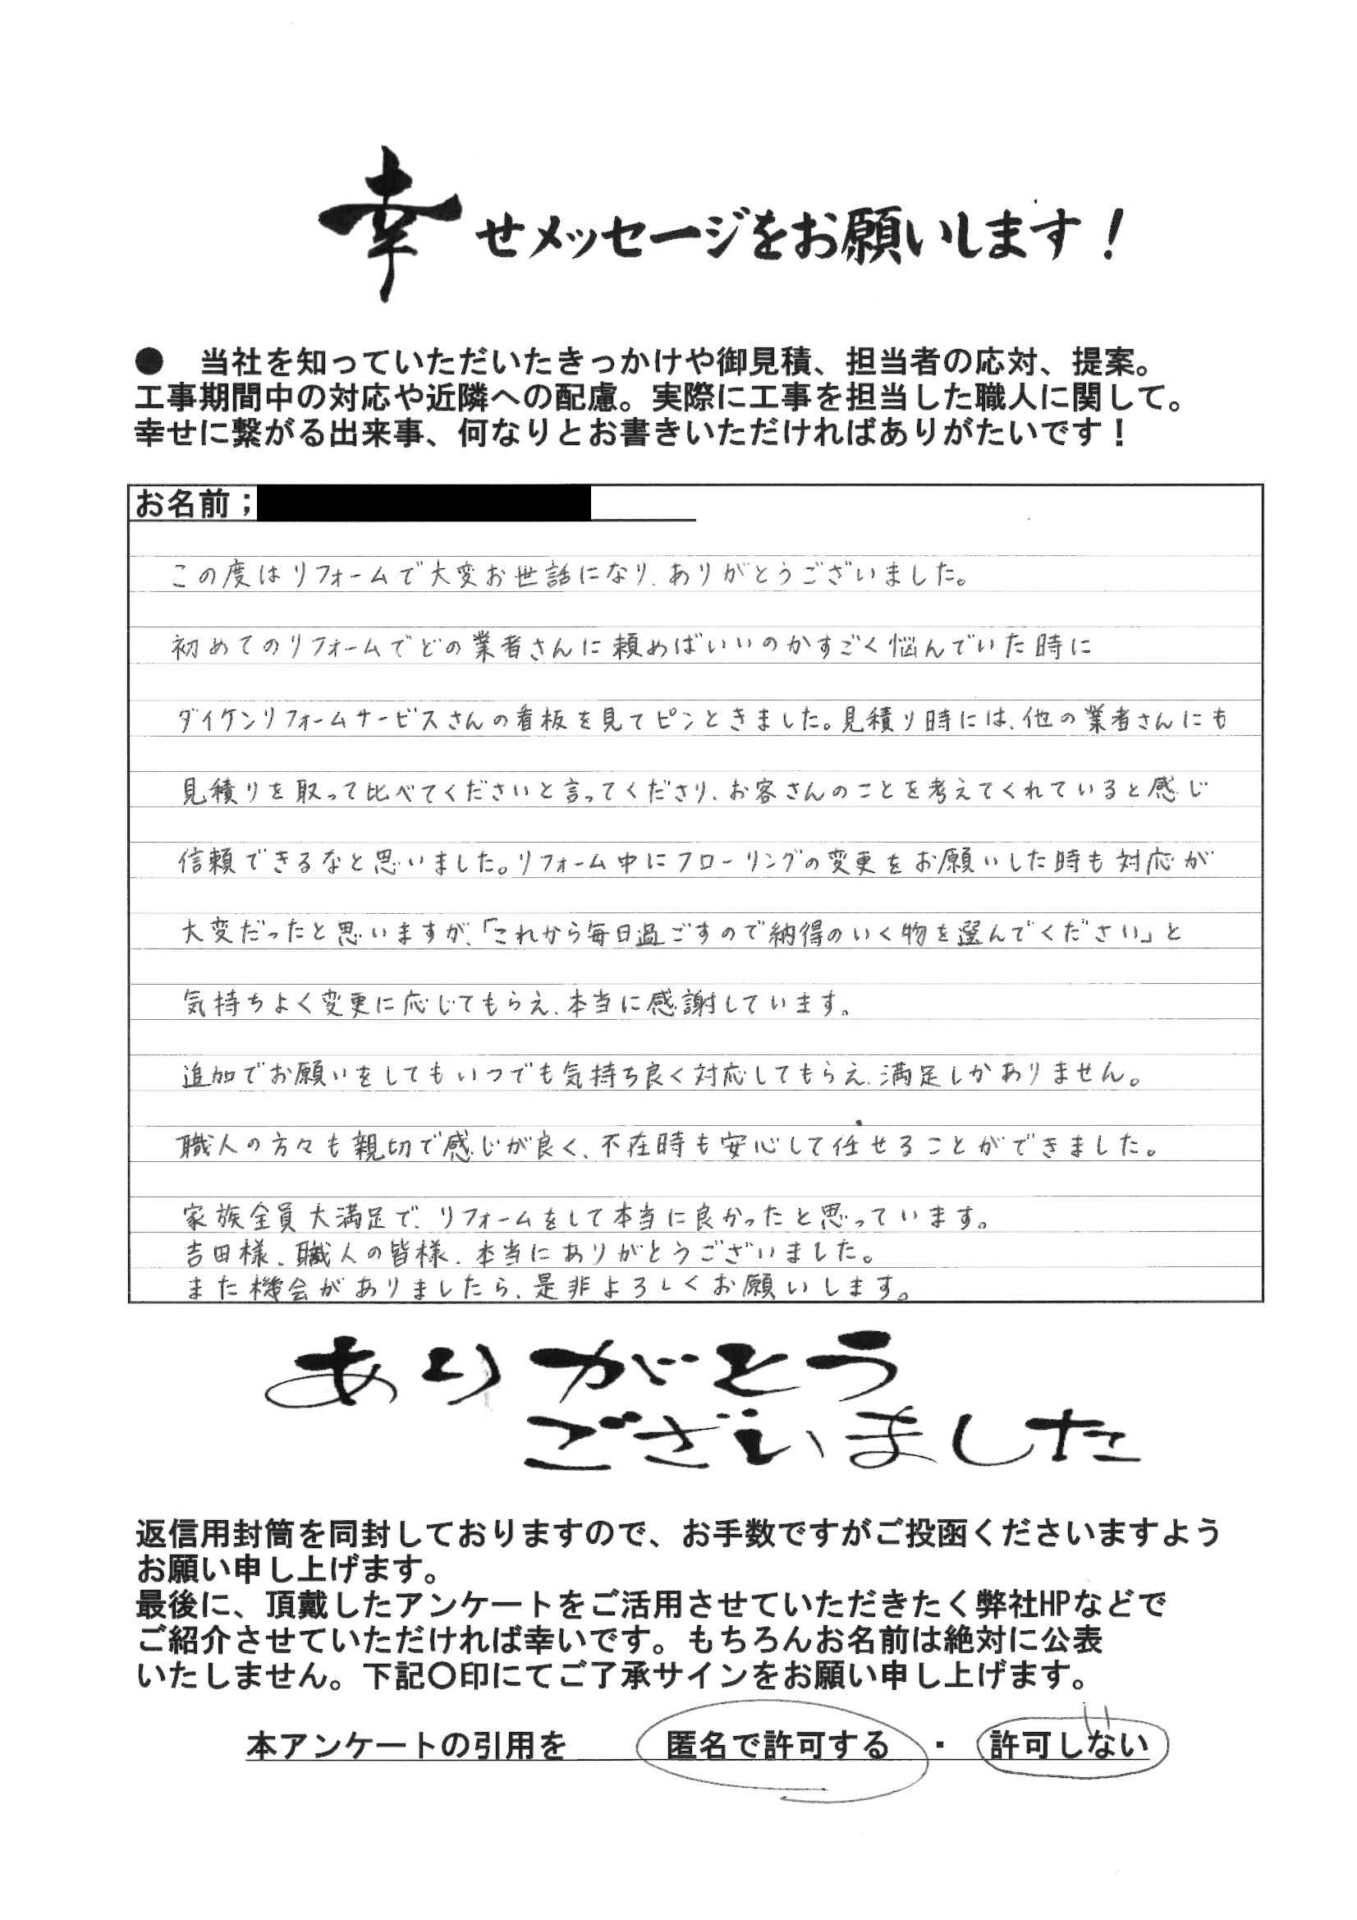 幸せメッセージをお願いします！
●　当社を知っていただいたきっかけや御見積、担当者の応対、提案。
工事期間中の対応や近隣への配慮。実際に工事を担当した職人に関して。
幸せに繋がる出来事、何なりとお書きいただければありがたいです！
お名前；
この度はリフォームで大変お世話になり、ありがとうございました。
初めてのリフォームでどの業者さんに頼めばいいのかすごく悩んでいた時に
ダイケンリフォームサービスさんの看板を見てピンときました。見積り時には、他の業者さんにも
見積りを取って比べてくださいと言ってくださり、お客さんのことを考えてくれていると感じ
信頼できるなと思いました。リフォーム中にフローリングの変更をお願いした時も対応が
大変だったと思いますが、「これから毎日過ごすので納得のいく物を選んでください」と
気持ちよく変更に応じてもらえ、本当に感謝しています。
追加でお願いをしてもいつでも気持ち良く対応してもらえ、満足しかありません。
職人の方々も親切で感じが良く、不在時も安心して任せることができました。
家族全員大満足で、リフォームをして本当に良かったと思っています。
吉田様、職人の皆様、本当にありがとうございました。
また機会がありましたら、是非よろしくお願いします。
ありがとう
ございました
返信用封筒を同封しておりますので、お手数ですがご投函くださいますよう
お願い申し上げます。
最後に、頂戴したアンケートをご活用させていただきたく弊社HPなどで
ご紹介させていただければ幸いです。もちろんお名前は絶対に公表
いたしません。下記〇印にてご了承サインをお願い申し上げます。
本アンケートの引用を　匿名で許可する　・　許可しない